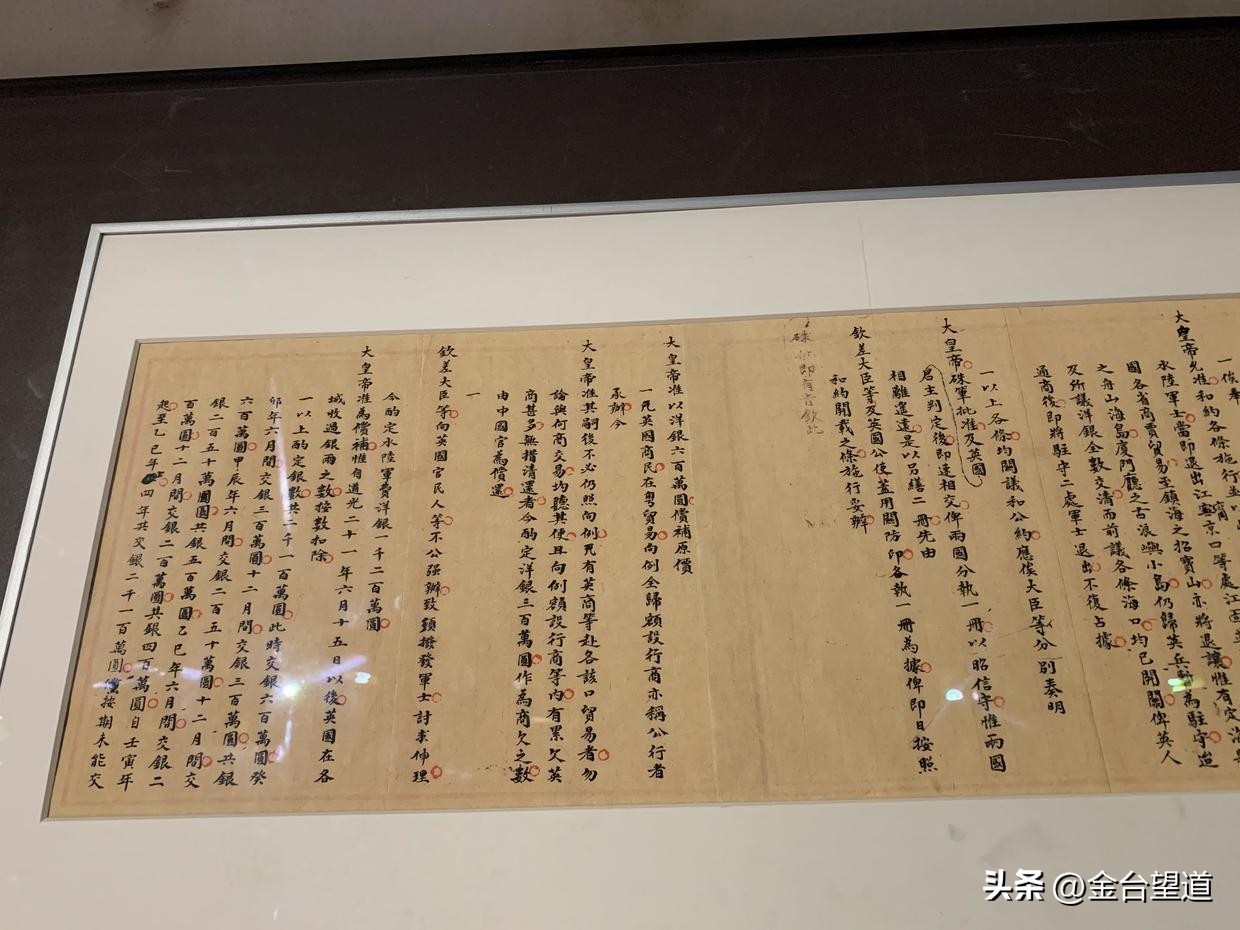 一俟奉
大皇帝允准和約各條施行並以
水陸軍士當即退出江寧京口等處江面並
國各省商賈貿易至鎮海之招寶山亦將退讓惟有定海縣
之舟山海島廈門廳之古浪嶼小島仍歸英兵暫為駐守迨
及所議洋銀全數交清而前議各條海口均已開闢俾英人
通商後即將駐守二處軍士退出不復占據
一以上各條均關議和公約應俟大臣等分別奏明
大皇帝硃筆批准及英國
君主判定後即速相交俾兩國分執一冊以昭信守惟兩國
相離遙遠是以另繕二冊先由
欽差大臣等及英國公使蓋用關防印各執一冊為據俾即日按照
和約開載之條施行妥辦
硃 即有旨欽此
大皇帝准以洋銀六百萬圓償補原價
一凡英國商民在粵貿易向例全歸額設行商亦稱公行者
承辦今
大皇帝准其嗣後不必仍照向例凡有英商等赴各該口貿易者勿
論與何商交易均聽其便且向例額設行商等內有累欠英
商甚多無措清還者今酌定洋銀三百萬圓作為商欠之數
由中國官為償還
一
欽差大臣等向英國官民人等不公強辦致須撥發軍士討求伸理
今酌定水陸軍費洋銀一千二百萬圓
大皇帝准為償補惟自道光二十一年六月十五日以後英國在各
城收過銀兩之數按數扣除
一以上酌定銀數共二千一百萬圓此時交銀六百萬圓癸
卯年六月間交銀三百萬圓十二月間交銀三百萬圓共銀
六百萬圓甲辰年六月間交銀二百五十萬圓十二月間交
銀二百五十萬圓共銀五百萬圓乙巳年六月間交銀二
百萬圓十二月間交銀二百萬圓共銀四百萬圓自壬寅年
起至乙巳年止四年共交銀二千一百萬圓儻按期未能交
头条 @金台望道